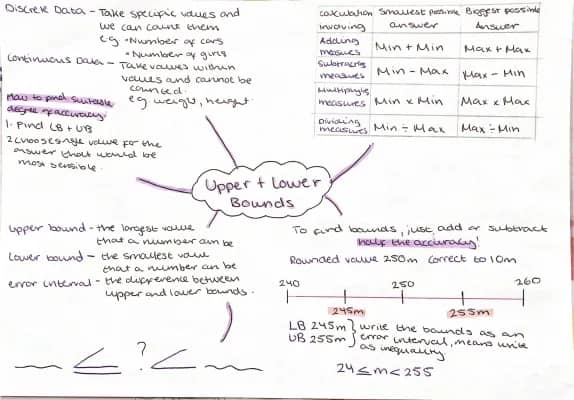 Discrete Data - Take specific values and
we can count them
e.g • Number of cars
• Number of girls
Continuous Data - Take values within
values and cannot be
counted.
e.g. weight, height.
How to find suitable
degree of accuracy.
1. Find LB + UB
2. Choose single value for the
answer that would be
most sensible.
Calculation involving | Smallest possible answer | Biggest possible Answer
Adding measures | Min + Min | Max + Max
Subtracting measures | Min - Max | Max - Min
Multiplying measures | Min x Min | Max x Max
Dividing measures | Min ÷ Max | Max ÷ Min
Upper + Lower
Bounds
Upper bound - the largest value
that a number can be
Lower bound - the smallest value
that a number can be
error interval - the difference between
upper and lower bounds.
≤ ? <
To find bounds, just add or subtract
half the accuracy!
Rounded value 250m correct to 10m
240 250 260
245m 255m
LB 245m } write the bounds as an
UB 255m } error interval, means write
as inequality.
24 ≤ m < 255